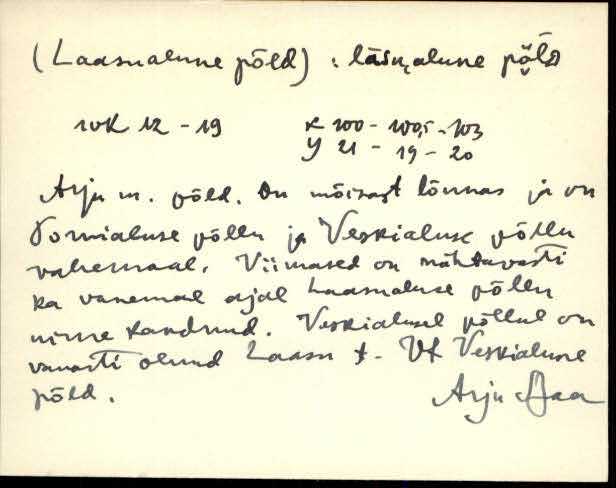 (Laasualuse põld) : lāsualuse põld
rvk 12 - 19 x 100 - 100,5 - 103
y 21 - 19 - 20
Arju m. põld. On mõisast lõunas ja on
Tornialuse põllu ja Veskialuse põllu
vahemaal. Viimased on nähtavasti
ka vanemal ajal Laasualuse põllu
nime kandnud. Veskialusel põllul on
vanasti olnud Laasu t. Vt Veskialuse
põld. Arju